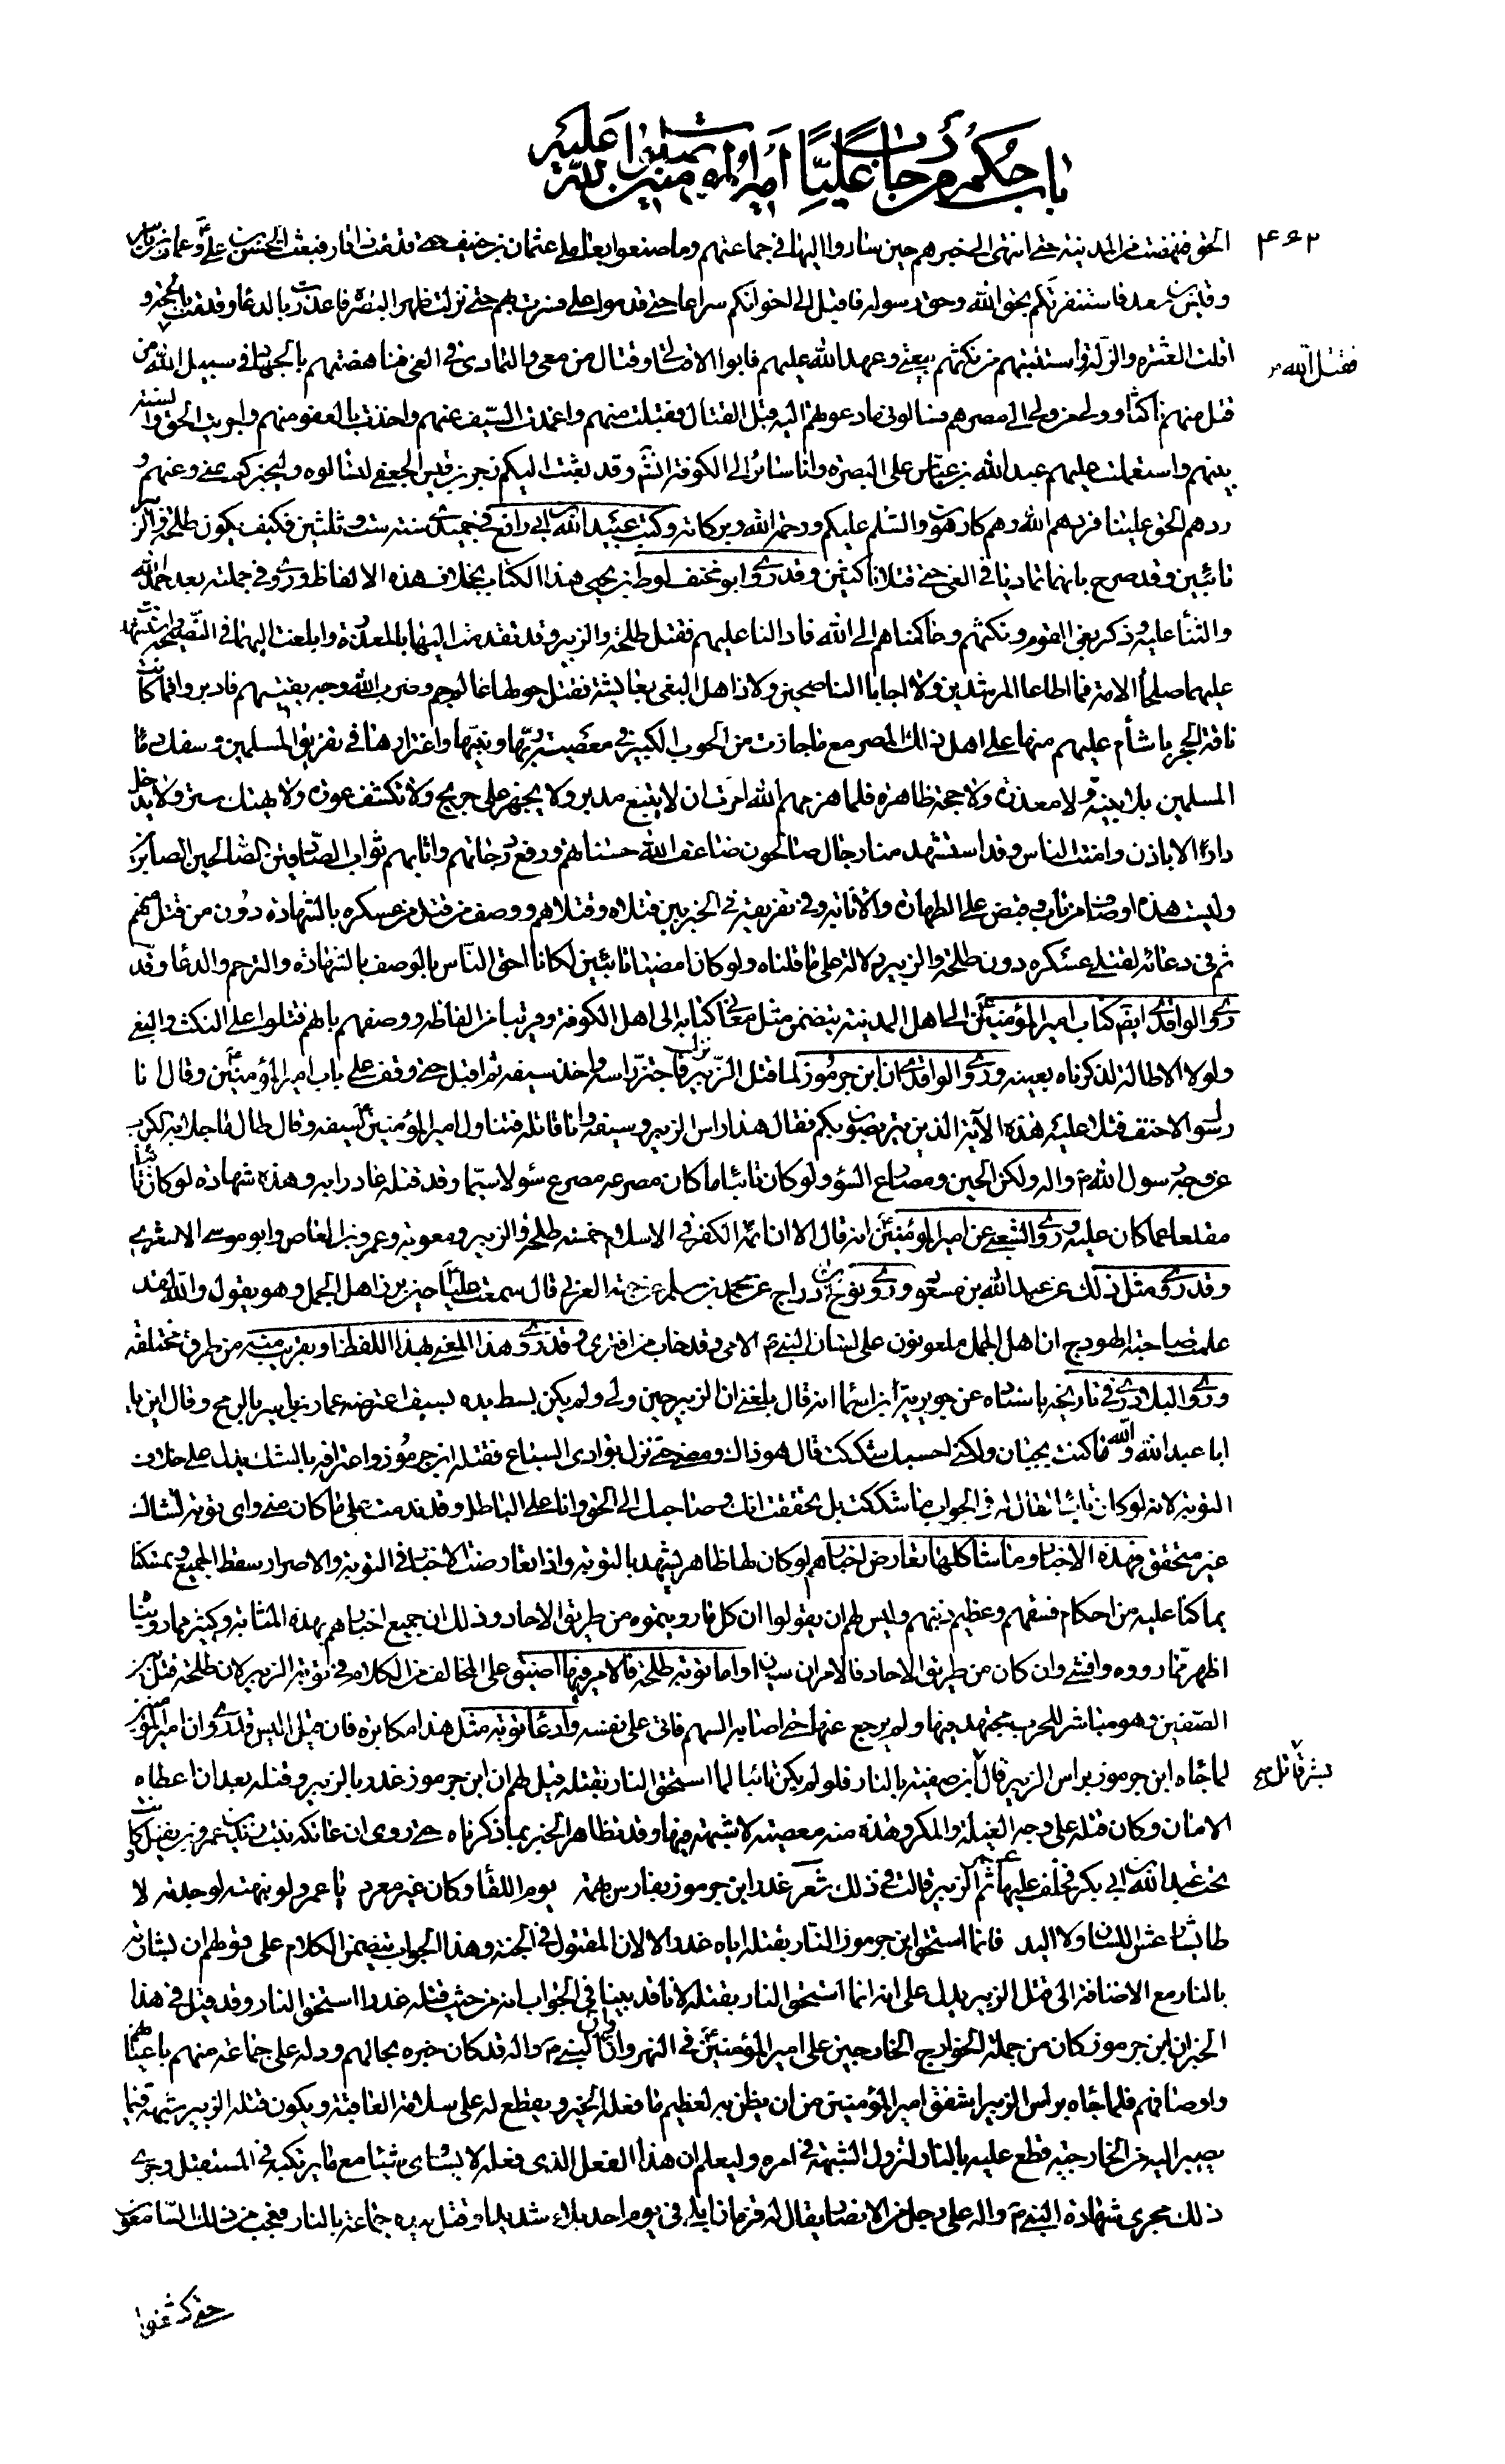 باب حكم من حارب عليا امير المؤمنين صلوات الله عليه
۴۶۲
الحق فنهضت من المدينة حتى انتهى الى خبرهم حين ساروا اليها في جماعتهم وما صنعوا بعاملي عثمان بن حنيف حتى قدمت ذا قار فبعثت الحسن بن علي وعمار بن ياسر
وقيس بن سعد فاستنفرتكم بحق الله وحق رسوله فاقبل الى اخوانكم سراعا حتى قدموا على فسرت بهم حتى نزلت ظهر البصرة فاعذرت بالدعا وقدمت بالحجة و
اقلت العثرة والزلة واستتبتهم من نكثهم بيعتي وعهد الله عليهم فابوا الا قتالي وقتال من معى والتمادى في الغى فناهضتهم بالجهاد في سبيل الله من
فقتل الله
قتل منهم ناكثا وولى من ولى الى مصرهم فسالونى ما دعوتهم اليه قبل القتال فقبلت منهم واغمدت السيف عنهم واخذت بالعفو منهم واجريت الحق والسنة
بينهم واستعملت عليهم عبد الله بن عباس على البصرة وانا سائر الى الكوفة انشاء وقد بعثت اليكم زجر بن قيس الجعفى لتسالوه وليخبركم عنى وعنهم و
ردهم الحق علينا فردهم الله وهم كارهون والسلم عليكم ورحمة الله وبركاته وكتب عبيد الله بن ابى رافع في جميدى سنة ست وثلثين فكيف يكون طلحة والزبير
تائبين وقد صرح بانهما تماديا في الغى حتى قتلا ناكثين وقد روى ابو مخنف لوط بن يحيى هذا الكتاب بخلاف هذه الالفاظ وروى في جملته بعد حمد الله
والثنأ عليه وذكر بغى القوم ونكثهم وحاكمناهم الى الله فادالنا عليهم فقتل طلحة والزبير وقد تقدمت اليهما بالمعذرة وابلغت اليهما في النصيحة واستشهدت
عليهما صلحأ الامة فما اطاعا المرشدين ولا اجابا الناصحين ولاذ اهل البغى بعايشة فقتل حولها عالم جم وضرب الله وجه بقيتهم فادبروا فما كانت
ناقة الحجر باشأم عليهم منها على اهل ذلك المصر مع ما جازت من الحوب الكبير في معصيت ربها ونبيها واغترارها في تفريق المسلمين وسفك دماء
المسلمين بلا بينة ولا معذرة ولا حجة ظاهرة فلما هزمهم الله امرت ان لا يتبع مدبر ولا يجهز على جريح ولا تكشف عورة ولا يهتك ستر ولا يدخل
دار الا باذن وامنت الناس وقد استشهد منا رجال صالحون ضاعف الله حسناتهم ورفع درجاتهم واثابهم ثواب الصادقين الصالحين الصابرين
وليست هذه اوصاف من تاب وقبض على الطهارة والانابة وفي تفريقه في الخبر بين قتلاه وقتلاهم ووصف من قتل من عسكره بالشهادة دون من قتل منهم
ثم في دعائه لقتلى عسكره دون طلحة والزبير دلالة على ما قلناه ولو كانا مضيا تائبين لكانا احق الناس بالوصف بالشهادة والترحم والدعا وقد
روى الواقدى ايضا كتاب امير المؤمنين الى اهل المدينة يتضمن مثل معانى كتابه الى اهل الكوفة وقريبا من الفاظه ووصفهم بانهم قتلوا على النكث والبغى
ولولا الاطالة لذكرناه بعينه وروى الواقدى ان ابن جرموز لما قتل الزبير نزل فاجتز راسه واخذ سيفه ثم اقبل حتى وقف على باب امير المؤمنين وقال انا
رسول الاحنف فتلا عليه هذه الآية الذين يتربصون بكم فقال هذا راس الزبير وسيفه وانا قاتله فتناول امير المؤمنين سيفه وقال طال ما جلا به الكرب
عن وجه رسول الله واله ولكن الحين ومصارع السؤ ولو كان تائبا ما كان مصرعه مصرع سؤ لا سيما وقد قتله غادرا به وهذه شهادة لو كان تائبا
مقلعا عما كان عليه وروى الشعبى عن امير المؤمنين انه قال الا ان ائمة الكفر في الاسلام خمسة طلحة والزبير ومعوية وعمرو بن العاص وابو موسى الاشعرى
وقد روى مثل ذلك عن عبد الله بن مسعود وروى نوح بن دراج عن محمد بن مسلم عن حبة العرنى قال سمعت عليا حين برز اهل الجمل وهو يقول والله لقد
علمت صاحبة الهودج ان اهل الجمل ملعونون على لسان النبى الامى وقد خاب من افترى وقد روى هذا المعنى بهذا اللفظ او بقريب منه من طرق مختلفة
وروى البلاذرى في تاريخه باسناده عن جويرية بن اسما انه قال بلغنى ان الزبير حين ولى ولم يكن بسط يده بسيف اعترضه عمار بن ياسر بالرمح وقال اين يا
ابا عبد الله والله ما كنت بجبان ولكنى احسبك شككت قال هو ذاك ومضى حتى نزل بوادى السباع فقتله ابن جرموز واعترافه بالشك يدل على خلاف
التوبة لانه لو كان تائبا لقال له في الجواب ما شككت بل تحققت انك وصاحبك الى الحق وانا على الباطل وقد ندمت على ما كان منى واى توبة لشاك
غير متحقق فهذه الاخبار وما شاكلها تعارض اخبارهم لو كان لها ظاهر يشهد بالتوبة واذا تعارضت الاخبار في التوبة والاصرار سقط الجميع وتمسكنا
بما كنا عليه من احكام فسقهم وعظيم ذنبهم وليس لهم ان يقولوا ان كل ما رويتموه من طريق الاحاد وذلك ان جميع اخبارهم بهذه المثابة وكثير مما رويناه
اظهر مما رووه وافشى وان كان من طريق الاحاد فالامران سيان واما توبة طلحة فالامر فيها اضيق على المخالف من الكلام في توبة الزبير لان طلحة قتل بين
الصفين وهو مباشر للحرب مجتهد فيها ولم يرجع عنها حتى اصابه السهم فاتى على نفسه وادعأ توبة مثل هذا مكابرة فان قيل اليس قد روى ان امير المؤمنين
لما جاءه ابن جرموز براس الزبير قال ابن صفية بالنار فلو لم يكن تائبا لما استحق النار بقتله قيل لهم ان ابن جرموز غدر بالزبير وقتله بعد ان اعطاه
بشر قاتل
الامان وكان قتله على وجه الغيلة والمكر وهذه منه معصية لا شبهة فيها وقد تظاهر الخبر بما ذكرناه حتى روى ان عاتكة بنت زيد بن عمرو بن نفيل وكانت
تحت عبد الله بن ابى بكر فخلف عليها عمر ثم الزبير قالت في ذلك شعر غدر ابن جرموز بفارس بهمة يوم اللقأ وكان غير معرد يا عمرو لو نبهته لوجدته لا
طائشا رعش اللسان ولا اليد فانما استحق ابن جرموز النار بقتله اياه غدرا لا لان المقتول في الجنة وهذا الجواب يتضمن الكلام على قولهم ان بشارته
بالنار مع الاضافة الى قتل الزبير يدل على انه انما استحق النار بقتله لانا قد بينا في الجواب انه من حيث قتله غدرا استحق النار وقد قيل في هذا
الخبر ان ابن جرموز كان من جملة الخوارج الخارجين على امير المؤمنين في النهروان وان النبى واله قد كان خبره بحالهم ودله على جماعة منهم باعيانهم
واوصافهم فلما جاءه براس الزبير اشفق امير المؤمنين من ان يظن به لعظيم ما فعله الخير ويقطع له على سلامة العاقبة ويكون قتله الزبير شبهة فيما
يصير اليه من الخارجية قطع عليه بالنار لتزول الشبهة في امره وليعلم ان هذا الفعل الذى فعله لا يساوى شيئا مع ما يرتكبه في المستقبل وجرى
ذلك مجرى شهادة النبى واله على رجل من الانصار يقال له قزمان ابلى في يوم احد بلاء شديدا وقتل بيده جماعة بالنار فعجب من ذلك السامعون
حتى كشفوا